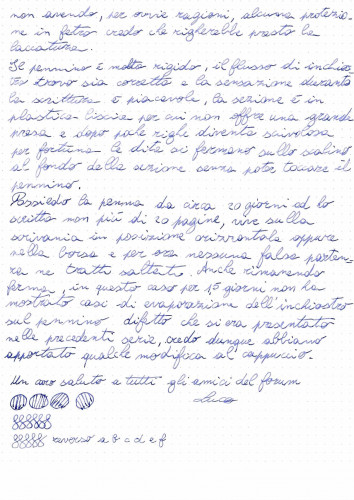 non avendo, per ovvie ragioni, alcuna protezio-
ne in feltro credo che righerebbe presto la
laccatura.
Il pennino è molto rigido, il flusso di inchios-
tro trovo sia corretto e la sensazione durante
la scrittura è piacevole, la sezione è in
plastica liscia per cui non offre una grande
presa e dopo poche righe diventa scivolosa
per fortuna le dita si fermano sullo scalino
al fondo della sezione senza poter toccare il
pennino.
Possiedo la penna da circa 20 giorni ed ho
scritto non più di 20 pagine, vive sulla
scrivania in posizione orizzontale oppure
nella borsa e per ora nessuna falsa parten-
za ne tratti saltati. Anche rimanendo
ferma, in questo caso per 15 giorni non ha
mostrato casi di evaporazione dell'inchiostro
sul pennino difetto che si era presentato
nelle precedenti serie, credo dunque abbiano
apportato qualche modifica al cappuccio.
Un caro saluto a tutti gli amici del forum
Luca
reverso a b c d e f